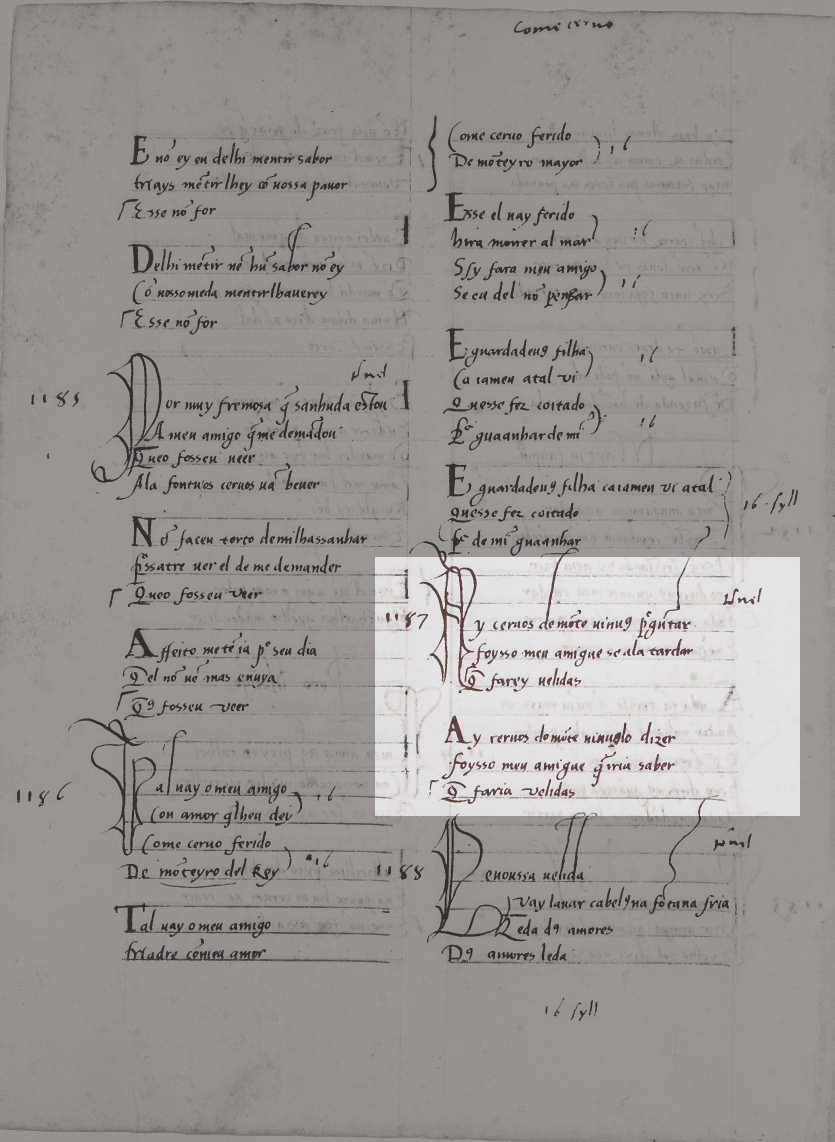 Come ceruo
E nõ ey eu delhi mentir sabor
trlays mẽtir lhey cõ uossa pauor
Esse nõ for
Delhi mẽtir nẽ hũ sabor nõ ey
Cõ uossomeda mentirlhauerey
Esse nõ for
1185
Por muy fremosa q̃ sanhuda estou
A meu amigo q̃me demãdou
Queo fosseu ueer
Ala fontuos ceruos uã beuer
Nõ faceu torto demilhassanhar
p̃ssatre uer el de me demander
Queo fosseu veer
Affeito me tẽ ia pº seu dia
Q̃el nõ uẽ mas enuya
Q̃9 fosseu veer
1186
Tal uay o meu amigo
Con amor q̃lheu dei 16
Come ceruo ferido
De mõteyro del Rey 16
Tal uay o meu amigo
trladre cõmeu amor
Come ceruo ferido
De mõteyro mayor 16
Esse el uay ferido
hira morrer al mar 16
Ssy fara meu amigo
Se eu del nõ pensar 16
E guardadeu9 filha
Ca iameu atal vi 16
Quesse fez coitado
Pº guaanhar de mi 16
E guardadeu9 filha ca iameu vi atal
Quesse fez coitado 16 syll
Pº de mi guaanhar
1187
y ceruos demõte uinu9 p̃gũtar
foysso meu amigue se ala tardar
Q̃ farey uelidas
Ay ceruos domõte uinuolo dizer
foysso meu amigue q̃iria saber
Q̃ faria velidas
1188
Levoussa uelida
Vay lauar cabel9 na fõtana fria
Leda d9 amores
D9 amores leda
16 syll